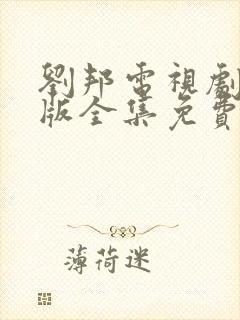 劉邦電視劇
版全集免費
薄荷迷